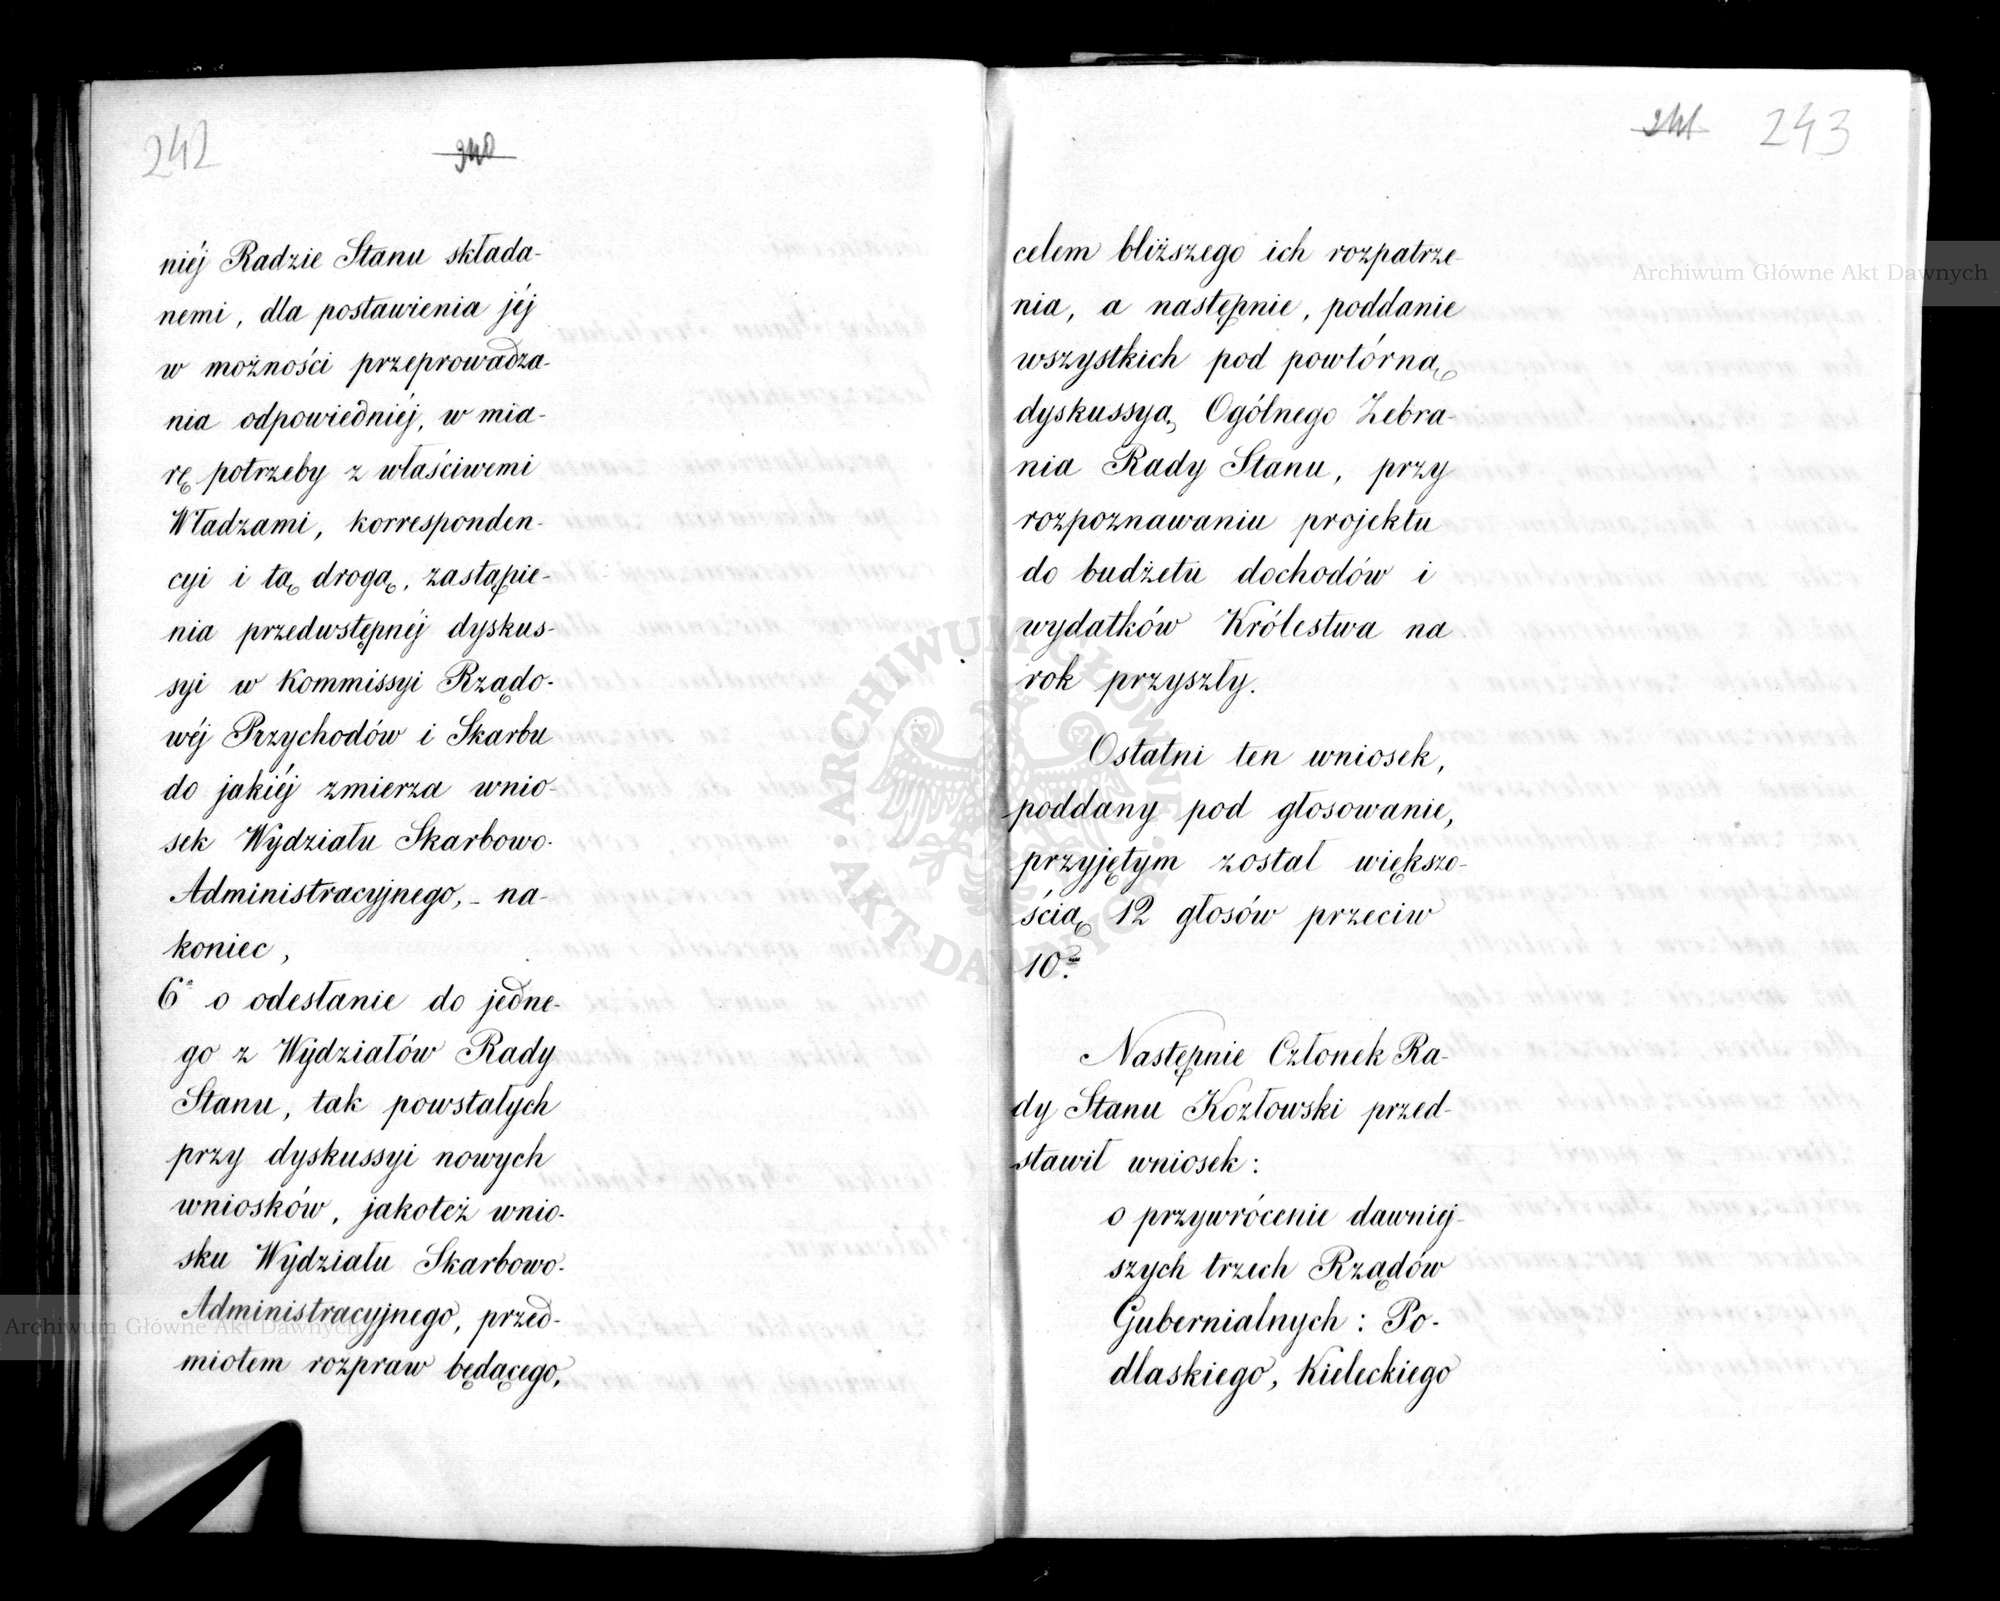 242
240
niéj Radzie Stanu składa-
nemi, dla postawienia jéj
w możności przeprowadza-
nia odpowiedniéj, w mia-
rę potrzeby z właściwemi
Władzami, korresponden-
cyi i tą drogą, zastąpie-
nia przedwstępnéj dyskus-
syi w Kommissyi Rządo-
wéj Przychodów i Skarbu
do jakiéj zmierza wnio-
sek Wydziału Skarbowo-
Administracyjnego, - na-
koniec,
6° o odesłanie do jedne-
go z Wydziałów Rady
Stanu, tak powstałych
przy dyskussyi nowych
wniosków, jakoteż wnio-
sku Wydziału Skarbowo-
Administracyjnego, przed-
miotem rozpraw będącego,
241 243
celem bliższego ich rozpatrze-
nia, a następnie, poddanie
wszystkich pod powtórną
dyskussyą Ogólnego Zebra-
nia Rady Stanu, przy
rozpoznawaniu projektu
do budżetu dochodów i
wydatków Królestwa na
rok przyszły.
Ostatni ten wniosek,
poddany pod głosowanie,
przyjętym został większo-
ścią 12 głosów przeciw
10.
Następnie Członek Ra-
dy Stanu Kozłowski przed-
stawił wniosek:
o przywrócenie dawniej-
szych trzech Rządów
Gubernialnych: Po-
dlaskiego, Kieleckiego
Archiwum Główne Akt Dawnych
Archiwum Główne Akt Dawnych
ARCHIWUM GŁÓWNE AKT DAWNYCH